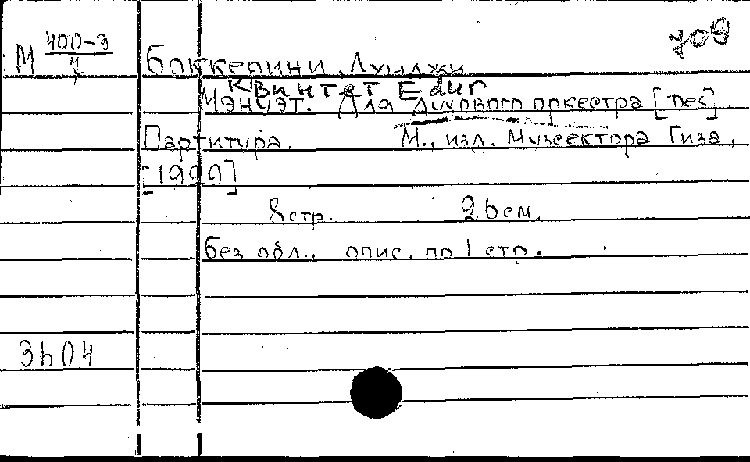 М 400-3/4
709
Боккерини, Луиджи
Квинтет Edur
Мэнуэт. Для духового оркестра [Пес]
Партитура. М., изд. Музсектора Гиза,
[1990]
8 стр. 26 см.
без обл., опис. по 1 стр.
3h04